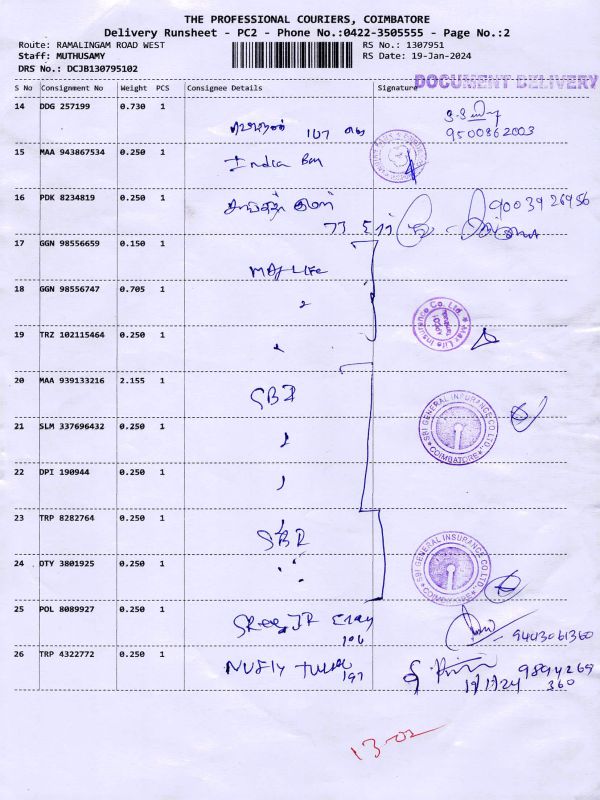 THE PROFESSIONAL COURIERS, COIMBATORE
Delivery Runsheet - PC2 - Phone No.:0422-3505555 - Page No.:2
Route: RAMALINGAM ROAD WEST RS No.: 1307951
Staff: MUTHUSAMY RS Date: 19-Jan-2024
DRS No.: DCJB130795102
DOCUMENT DELIVERY
S No Consignment No Weight PCS Consignee Details Signature
14 DDG 257199 0.730 1
107
9500862003
15 MAA 943867534 0.250 1
India
16 PDK 8234819 0.250 1
9003926956
17 GGN 98556659 0.150 1
Max LIFe
18 GGN 98556747 0.705 1
Max Life Insurance Co. Ltd.
19 TRZ 102115464 0.250 1
20 MAA 939133216 2.155 1
SBI
SBI GENERAL INSURANCE CO.LTD.
COIMBATORE
21 SLM 337696432 0.250 1
22 DPI 190944 0.250 1
23 TRP 8282764 0.250 1
SBI
SBI GENERAL INSURANCE CO.LTD.
COIMBATORE
24 OTY 3801925 0.250 1
25 POL 8089927 0.250 1
SRee
196
9443061360
26 TRP 4322772 0.250 1
197
19/1/24
9894269
360
13-02